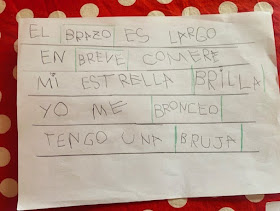 EL BRAZO ES LARGO
EN BREVE COMERE
MI ESTRELLA BRILLA
YO ME BRONCEO
TENGO UNA BRUJA